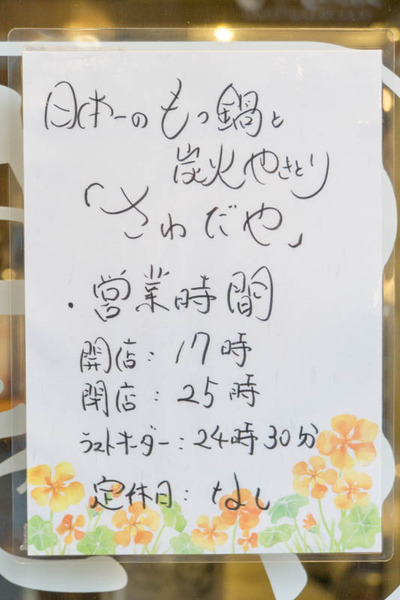 日本一のもつ鍋と
炭火やきとり
「さわだや」
・営業時間
開店：17時
閉店：25時
ラストオーダー：24時30分
定休日：なし